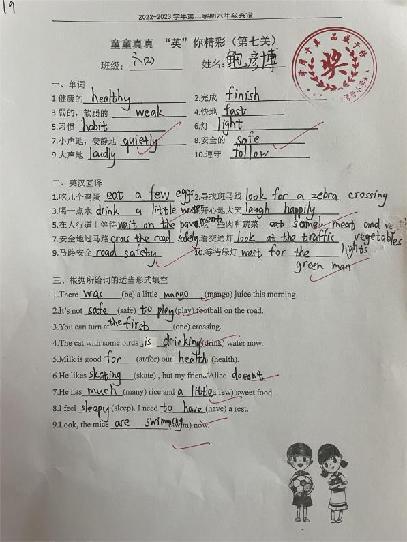 19
2022-2023学年第二学期六年级英语
童童真真 “英”你精彩（第七关）
班级： 姓名：
奖
一、单词
1.健康的 healthy 2.完成 finish
3.弱的，软弱的 weak 4.快地 fast
5.习惯 habit 6.灯 light
7.小声地，安静地 quietly 8.安全的 safe
9.大声地 loudly 10.遵守 follow
二、英汉互译
1.吃几个鸡蛋 eat a few eggs 2.寻找斑马线 look for a zebra crossing
3.喝一点水 drink a little water 4.开心地大笑 laugh happily
5.在人行道上等待 wait on the pavement 6.吃一些肉和蔬菜 eat some meat and vegetables
7.安全地过马路 cross the road safely 8.看交通灯 look at the traffic lights
9.马路安全 road safety 10.等待绿灯 wait for the green man
三、根据所给词的适当形式填空
1.There was (be) a little mango (mango) juice this morning.
2.It's not safe (safe) to play (play) football on the road.
3.You can turn the first (one) crossing.
4.The cat with some birds is drinking (drink) water now.
5.Milk is good for our health (health).
6.He likes skating (skate) , but my friend Alice doesn't
7.He has much (many) rice and a little (few) sweet food.
8.I feel sleepy (sleep). I need to have (have) a rest.
9.Look, the mice are swimming (swim) now.